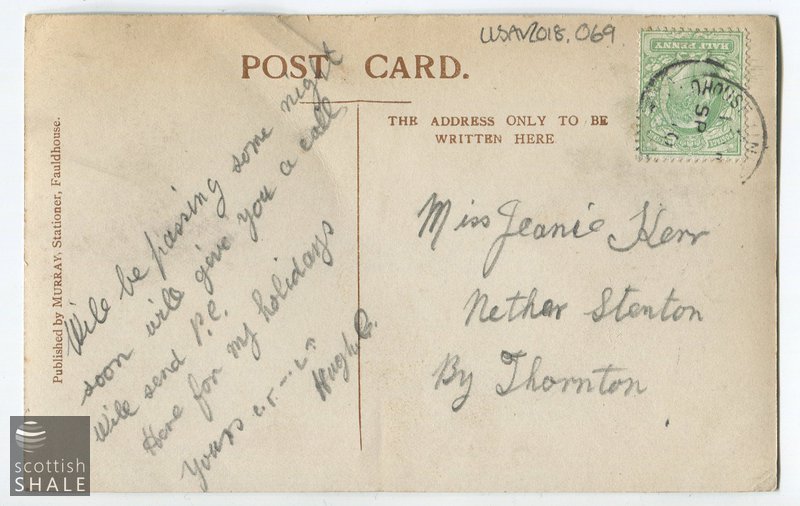 LLSAV2018.069
POST CARD.
THE ADDRESS ONLY TO BE
WRITTEN HERE
HALF PENNY
Published by MURRAY, Stationer, Fauldhouse.
Will be passing some night
soon will give you a call
Will send P.C.
Here for my holidays
Yours
Hugh C.
Miss Jeanie Kerr
Nether Stenton
By Thornton
scottish
SHALE